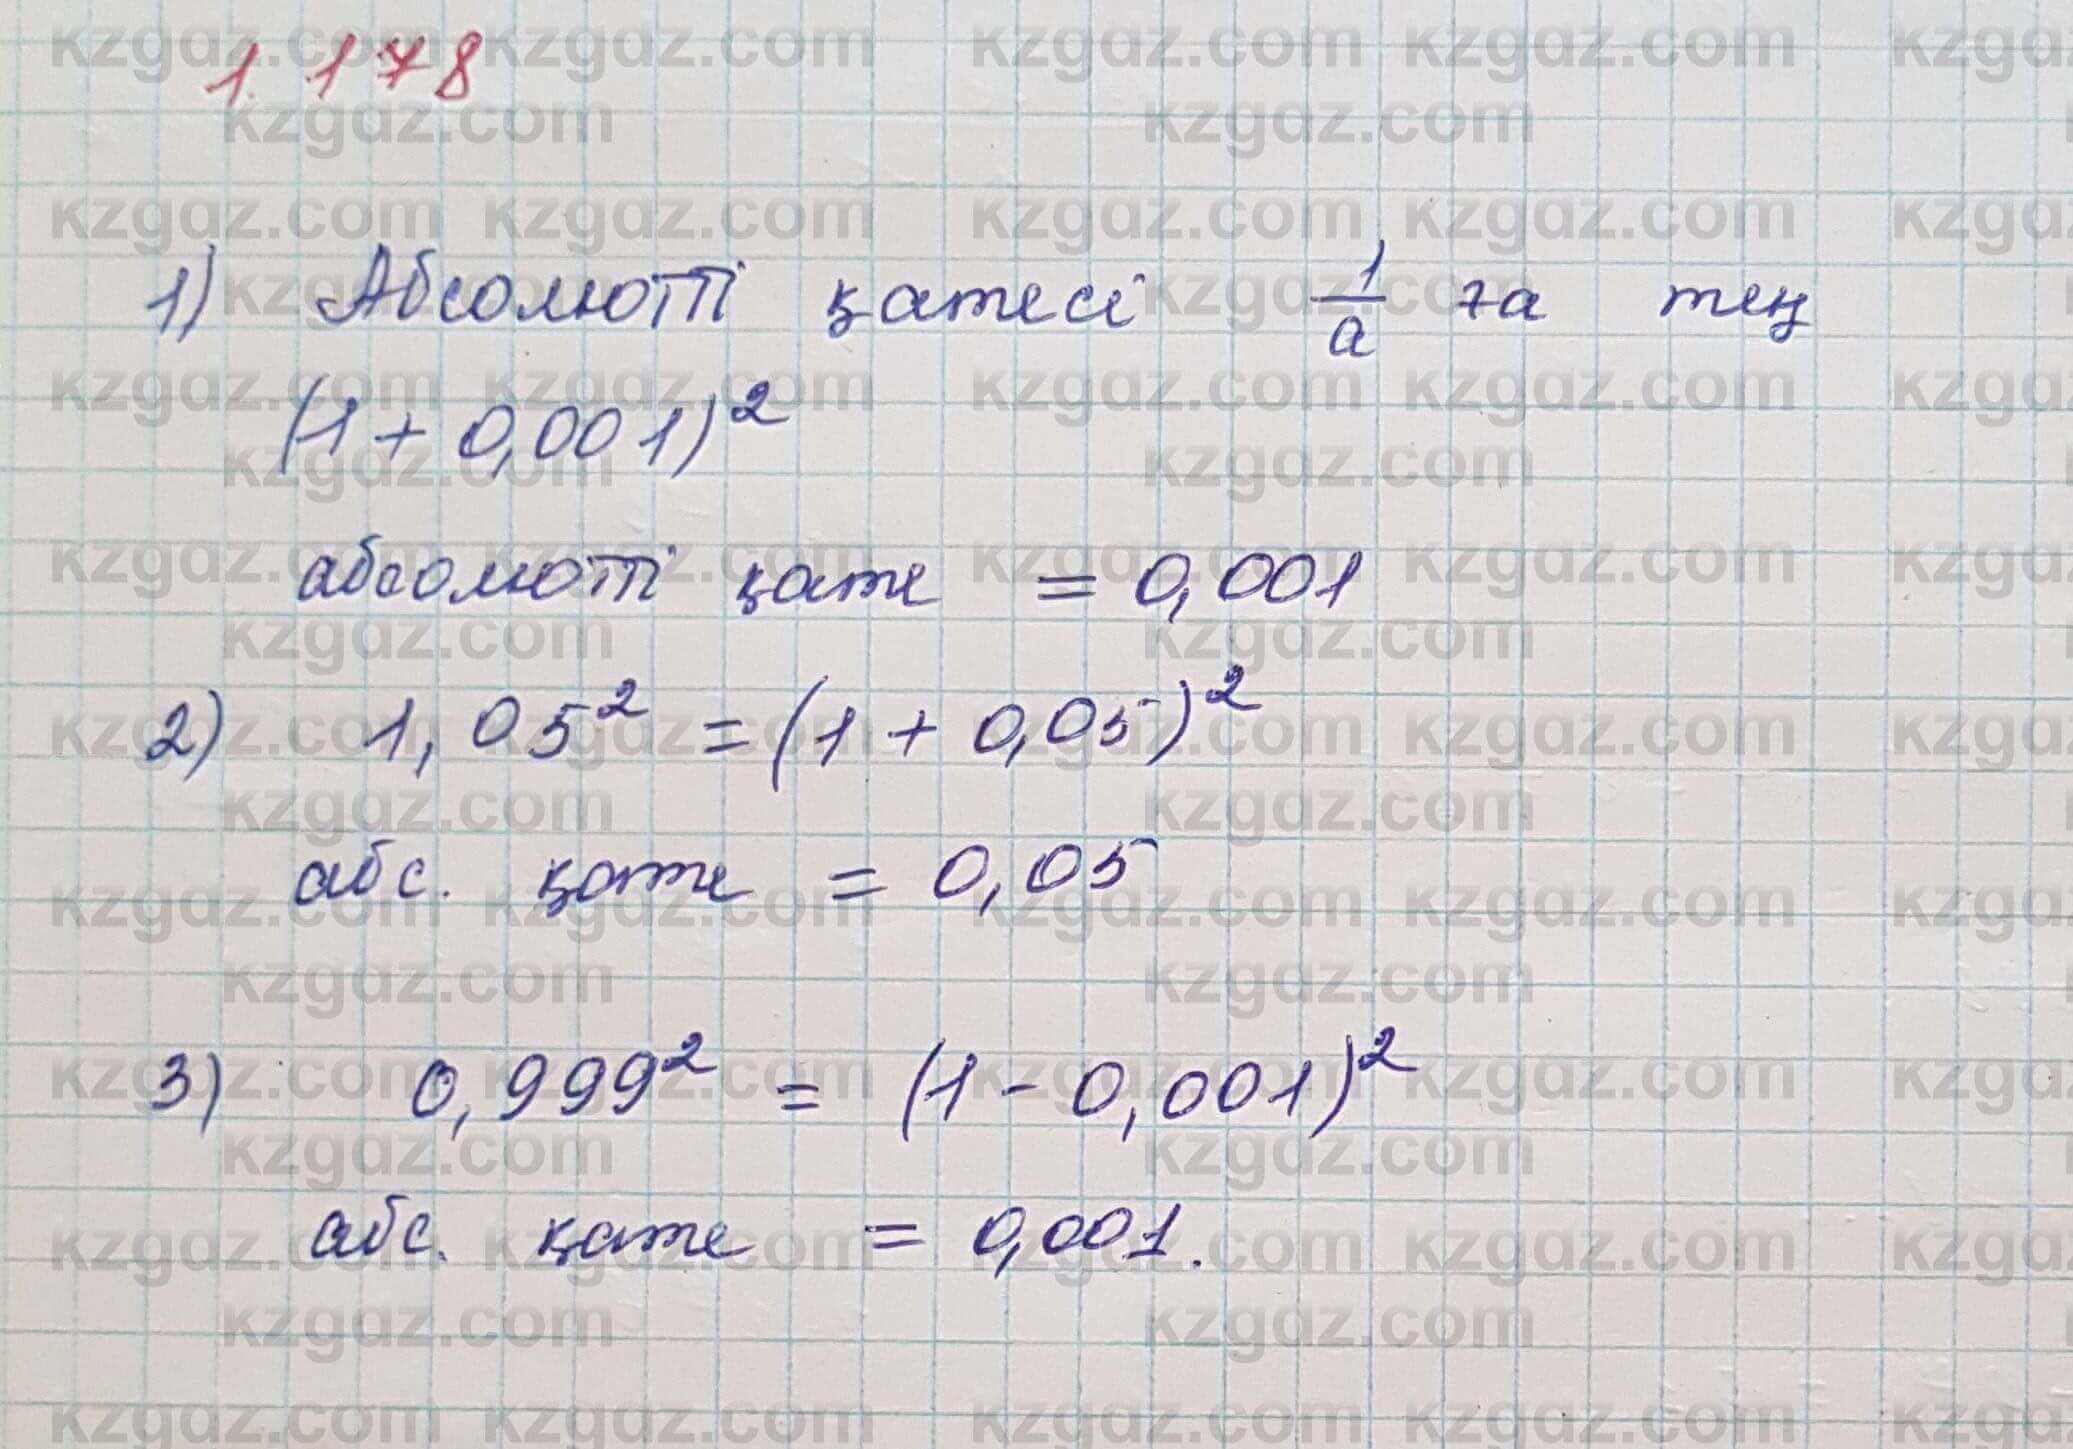 1.178
1) Абсолютті қатесі 1/a ға тең
(1 + 0,001)²
абсолютті қате = 0,001
2) 1,05² = (1 + 0,05)²
абс. қате = 0,05
3) 0,999² = (1 - 0,001)²
абс. қате = 0,001.
kzgdz.com